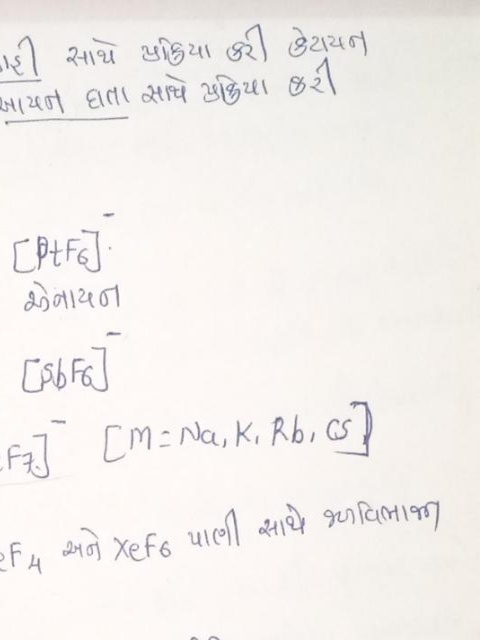 સાથે પ્રક્રિયા કરી કેટાયન
આયન દાતા સાથે પ્રક્રિયા કરી
[PtF6]⁻
એનાયન
[SbF6]⁻
F7]⁻ [M = Na, K, Rb, Cs]
eF4 અને XeF6 પાણી સાથે જળવિભાજન